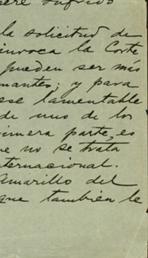 sufrido
la solicitud de
invoca la Corte
pueden ser más
mantes; y para
ese lamentable
de uno de los
rimera parte, es
ue no se trata
ternacional.
amarillo del
que también le